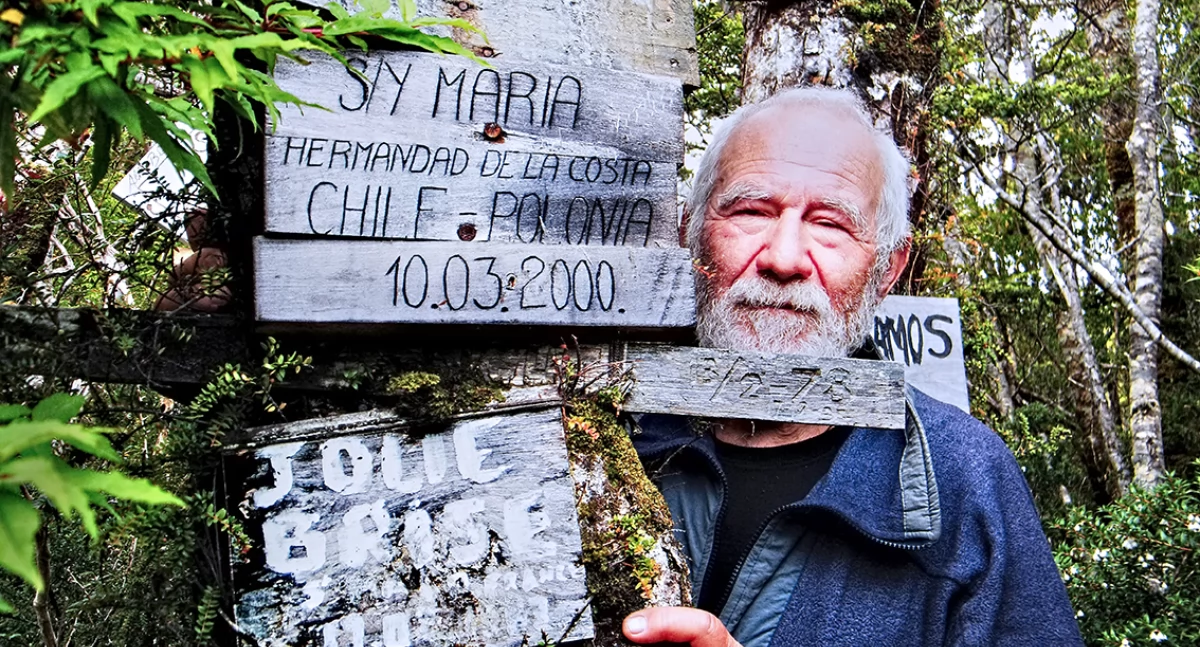 S/Y MARIA
HERMANDAD DE LA COSTA
CHILE - POLONIA
10.03.2000.
AMOS
JOLIE
BRISE